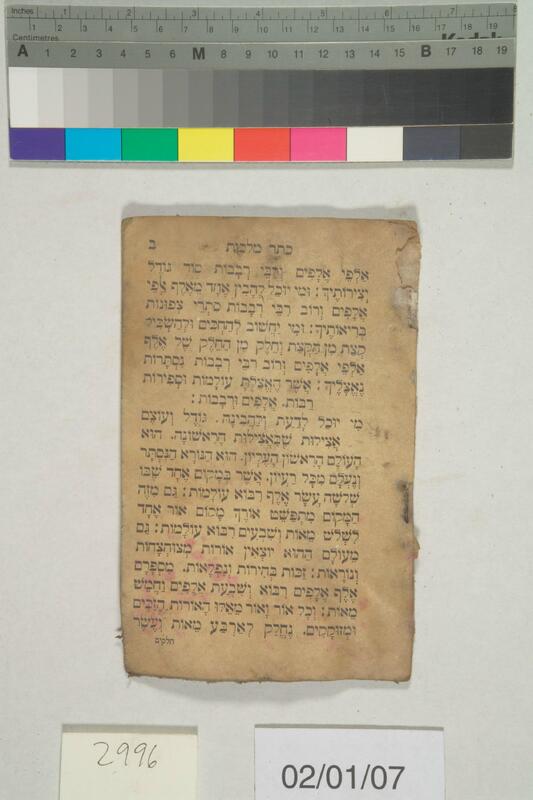 Inches 1 2 3 4 5 6 7 8
Centimetres 1 2 3 4 5 6 7 8 9 10 11 12 13 14 15 16 17 18 19
A 1 2 3 4 5 6 M 8 9 10 11 12 13 14 15 B 17 18 19
כתר מלכות ב
אַלְפֵי אֲלָפִים וְרִבֵּי רְבָבוֹת סוֹד גּוֹדֶל
יְצִירוֹתֶיךָ: וּמִי יוּכַל לְהָבִין אֶחָד מֵאֶלֶף אַלְפֵי
אֲלָפִים וְרוֹב רִבֵּי רְבָבוֹת סִתְרֵי צְפוּנוֹת
בְּרִיאוֹתֶיךָ: וּמִי יַחְשׁוֹב לְהַחְכִּים וּלְהַשְׂכִּיל
קְצָת מִן הַקְּצָת וְחֵלֶק מִן הַחֵלֶק שֶׁל אֶלֶף
אַלְפֵי אֲלָפִים וְרוֹב רִבֵּי רְבָבוֹת נִסְתָּרוֹת
נֶאֱצָלֶיךָ: אֲשֶׁר הֶאֱצַלְתָּ עוֹלָמוֹת וּסְפִירוֹת
רַבּוֹת. אֲלָפִים וּרְבָבוֹת:
מִי יוּכַל לָדַעַת וְלַהֲבִינָה. גּוֹדֶל וְעוֹצֶם
אֲצִילוּת שֶׁבָּאֲצִילוּת הָרִאשׁוֹנָה. הוּא
הָעוֹלָם הָרִאשׁוֹן הָעֶלְיוֹן. הוּא הַנּוֹרָא הַנִּסְתָּר
וְנֶעְלָם מִכָּל רַעְיוֹן. אֲשֶׁר בְּמָקוֹם אֶחָד שֶׁבּוֹ
שְׁלֹשָׁה עָשָׂר אֶלֶף רִבּוֹא עוֹלָמוֹת: גַּם מִזֶּה
הַמָּקוֹם מִתְפַּשֵּׁט אוֹרֶךְ מָקוֹם אוֹר אֶחָד
לִשְׁלֹשׁ מֵאוֹת וְשִׁבְעִים רִבּוֹא עוֹלָמוֹת: גַּם
מֵעוֹלָם הַהוּא יוֹצְאִין אוֹרוֹת מְצוּחְצָחוֹת
וְנוֹרָאוֹת: זַכּוֹת בְּהִירוֹת וְנִפְלָאוֹת. מִסְפָּרָם
אֶלֶף אֲלָפִים רִבּוֹא וְשִׁבְעַת אֲלָפִים וַחֲמֵשׁ
מֵאוֹת: וְכָל אוֹר וָאוֹר מֵאֵלּוּ הָאוֹרוֹת הַזַּכִּים
וּמְזוּקָּקִים. נֶחֱלַק לְאַרְבַּע מֵאוֹת וְעֶשֶׂר
חלקים
2996
02/01/07